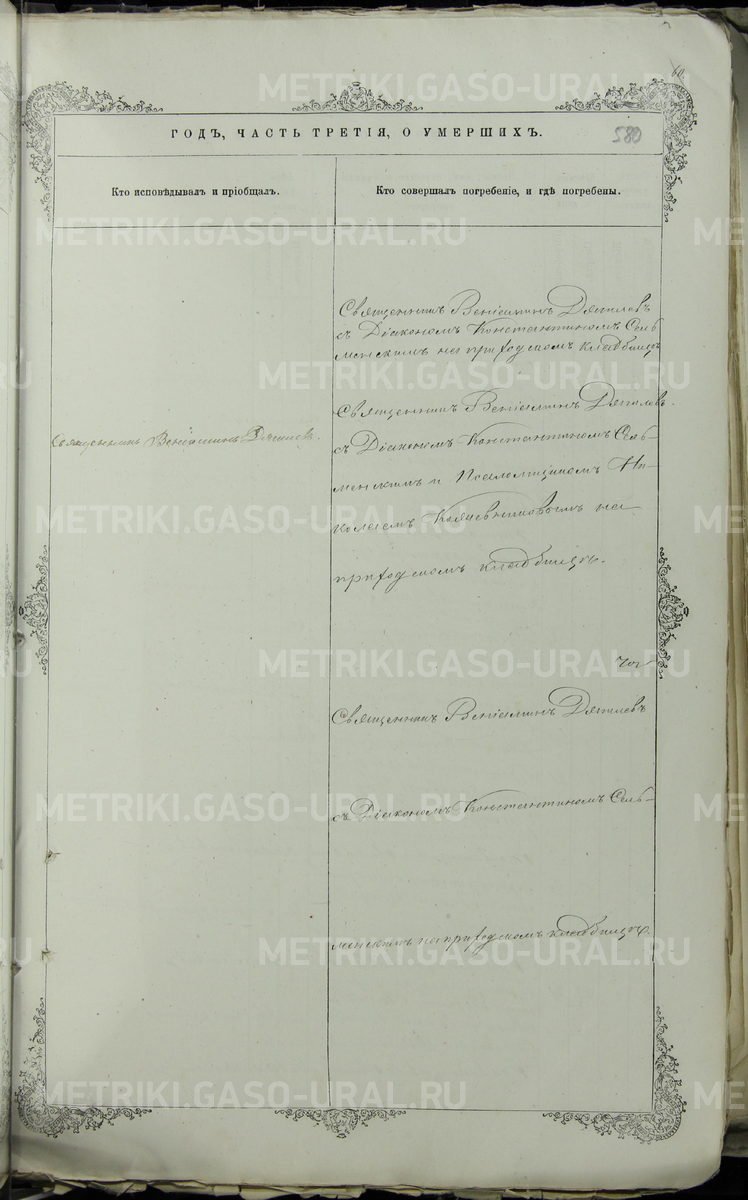 60.
ГОДЪ, ЧАСТЬ ТРЕТІЯ, О УМЕРШИХЪ.
580
Кто исповѣдывалъ и пріобщалъ.
Кто совершалъ погребеніе, и гдѣ погребены.
METRIKI.GASO-URAL.RU
Священникъ Веніаминъ Дягилевъ
съ Діакономъ Константиномъ Сель-
менскимъ на приходскомъ кладбищѣ
Священникъ Веніаминъ Дягилевъ.
Священникъ Веніаминъ Дягилевъ
съ Діакономъ Константиномъ Сель-
менскимъ и Псаломщикомъ Ни-
колаемъ на
приходскомъ кладбищѣ.
Священникъ Веніаминъ Дягилевъ
съ Діакономъ Константиномъ Сель-
менскимъ на приходскомъ кладбищѣ.